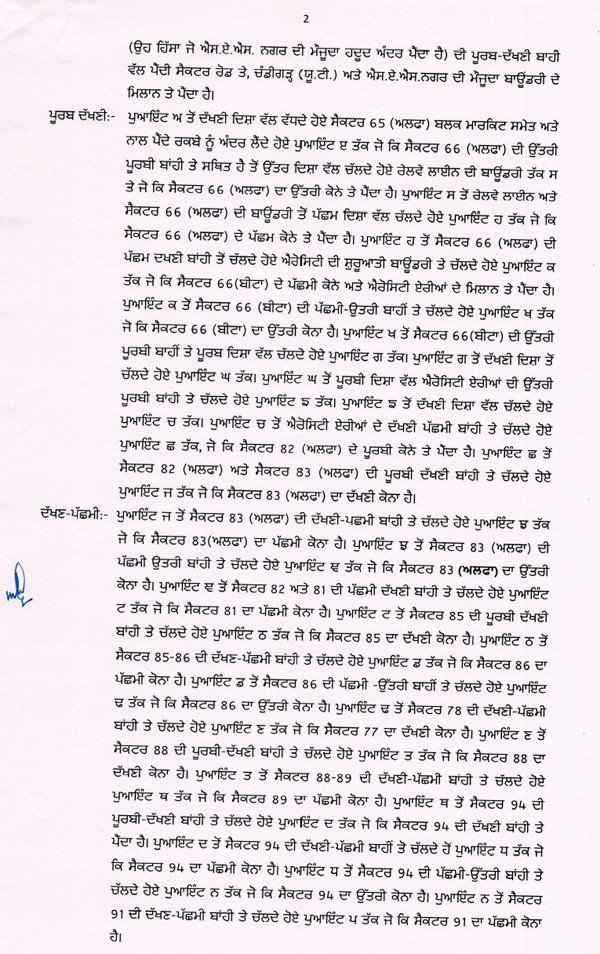 2
(ਉਹ ਹਿੱਸਾ ਜੋ ਐਸ.ਏ.ਐਸ. ਨਗਰ ਦੀ ਮੌਜੂਦਾ ਹਦੂਦ ਅੰਦਰ ਪੈਂਦਾ ਹੈ) ਦੀ ਪੂਰਬ-ਦੱਖਣੀ ਬਾਹੀ
ਵੱਲ ਪੈਂਦੀ ਸੈਕਟਰ ਰੋਡ ਤੇ, ਚੰਡੀਗੜ੍ਹ (ਯੂ.ਟੀ.) ਅਤੇ ਐਸ.ਏ.ਐਸ.ਨਗਰ ਦੀ ਮੌਜੂਦਾ ਬਾਊਂਡਰੀ ਦੇ
ਮਿਲਾਨ ਤੇ ਪੈਂਦਾ ਹੈ।
ਪੂਰਬ ਦੱਖਣੀ:- ਪੁਆਇੰਟ ਅ ਤੋਂ ਦੱਖਣੀ ਦਿਸ਼ਾ ਵੱਲ ਵੱਧਦੇ ਹੋਏ ਸੈਕਟਰ 65 (ਅਲਫਾ) ਬਲਕ ਮਾਰਕਿਟ ਸਮੇਤ ਅਤੇ
ਨਾਲ ਪੈਂਦੇ ਰਕਬੇ ਨੂੰ ਅੰਦਰ ਲੈਂਦੇ ਹੋਏ ਪੁਆਇੰਟ ੲ ਤੱਕ ਜੋ ਕਿ ਸੈਕਟਰ 66 (ਅਲਫਾ) ਦੀ ਉੱਤਰੀ
ਪੂਰਬੀ ਬਾਂਹੀ ਤੇ ਸਥਿਤ ਹੈ ਤੋਂ ਉੱਤਰ ਦਿਸ਼ਾ ਵੱਲ ਚੱਲਦੇ ਹੋਏ ਰੇਲਵੇ ਲਾਈਨ ਦੀ ਬਾਊਂਡਰੀ ਤੱਕ ਸ
ਤੇ ਜੋ ਕਿ ਸੈਕਟਰ 66 (ਅਲਫਾ) ਦਾ ਉੱਤਰੀ ਕੋਨੇ ਤੇ ਪੈਂਦਾ ਹੈ। ਪੁਆਇੰਟ ਸ ਤੋਂ ਰੇਲਵੇ ਲਾਈਨ ਅਤੇ
ਸੈਕਟਰ 66 (ਅਲਫਾ) ਦੀ ਬਾਊਂਡਰੀ ਤੋਂ ਪੱਛਮ ਦਿਸ਼ਾ ਵੱਲ ਚੱਲਦੇ ਹੋਏ ਪੁਆਇੰਟ ਹ ਤੱਕ ਜੋ ਕਿ
ਸੈਕਟਰ 66 (ਅਲਫਾ) ਦੇ ਪੱਛਮ ਕੋਨੇ ਤੇ ਪੈਂਦਾ ਹੈ। ਪੁਆਇੰਟ ਹ ਤੋਂ ਸੈਕਟਰ 66 (ਅਲਫਾ) ਦੀ
ਪੱਛਮ ਦਖਣੀ ਬਾਂਹੀ ਤੋਂ ਚਲਦੇ ਹੋਏ ਐਰੋਸਿਟੀ ਦੀ ਸ਼ੁਰੂਆਤੀ ਬਾਊਂਡਰੀ ਤੇ ਚੱਲਦੇ ਹੋਏ ਪੁਆਇੰਟ ਕ
ਤੱਕ ਜੋ ਕਿ ਸੈਕਟਰ 66(ਬੀਟਾ) ਦੇ ਪੱਛਮੀ ਕੋਨੇ ਅਤੇ ਐਰੋਸਿਟੀ ਏਰੀਆਂ ਦੇ ਮਿਲਾਨ ਤੇ ਪੈਂਦਾ ਹੈ।
ਪੁਆਇੰਟ ਕ ਤੋਂ ਸੈਕਟਰ 66 (ਬੀਟਾ) ਦੀ ਪੱਛਮੀ-ਉਤਰੀ ਬਾਹੀਂ ਤੇ ਚੱਲਦੇ ਹੋਏ ਪੁਆਇੰਟ ਖ ਤੱਕ
ਜੋ ਕਿ ਸੈਕਟਰ 66 (ਬੀਟਾ) ਦਾ ਉੱਤਰੀ ਕੋਨਾ ਹੈ। ਪੁਆਇੰਟ ਖ ਤੋਂ ਸੈਕਟਰ 66(ਬੀਟਾ) ਦੀ ਉੱਤਰੀ
ਪੂਰਬੀ ਬਾਹੀਂ ਤੇ ਪੂਰਬ ਦਿਸ਼ਾ ਵੱਲ ਚੱਲਦੇ ਹੋਏ ਪੁਆਇੰਟ ਗ ਤੱਕ। ਪੁਆਇੰਟ ਗ ਤੋਂ ਦੱਖਣੀ ਦਿਸ਼ਾ ਤੋਂ
ਚੱਲਦੇ ਹੋਏ ਪੁਆਇੰਟ ਘ ਤੱਕ। ਪੁਆਇੰਟ ਘ ਤੋਂ ਪੂਰਬੀ ਦਿਸ਼ਾ ਵੱਲ ਐਰੋਸਿਟੀ ਏਰੀਆਂ ਦੀ ਉੱਤਰੀ
ਪੂਰਬੀ ਬਾਂਹੀ ਤੇ ਚੱਲਦੇ ਹੋਏ ਪੁਆਇੰਟ ਙ ਤੱਕ। ਪੁਆਇੰਟ ਙ ਤੋਂ ਦੱਖਣੀ ਦਿਸ਼ਾ ਵੱਲ ਚੱਲਦੇ ਹੋਏ
ਪੁਆਇੰਟ ਚ ਤੱਕ। ਪੁਆਇੰਟ ਚ ਤੋਂ ਐਰੋਸਿਟੀ ਏਰੀਆਂ ਦੇ ਦੱਖਣੀ ਪੱਛਮੀ ਬਾਂਹੀ ਤੇ ਚੱਲਦੇ ਹੋਏ
ਪੁਆਇੰਟ ਛ ਤੱਕ, ਜੋ ਕਿ ਸੈਕਟਰ 82 (ਅਲਫਾ) ਦੇ ਪੂਰਬੀ ਕੋਨੇ ਤੇ ਪੈਂਦਾ ਹੈ। ਪੁਆਇੰਟ ਛ ਤੋਂ
ਸੈਕਟਰ 82 (ਅਲਫਾ) ਅਤੇ ਸੈਕਟਰ 83 (ਅਲਫਾ) ਦੀ ਪੂਰਬੀ ਦੱਖਣੀ ਬਾਂਹੀ ਤੇ ਚੱਲਦੇ ਹੋਏ
ਪੁਆਇੰਟ ਜ ਤੱਕ ਜੋ ਕਿ ਸੈਕਟਰ 83 (ਅਲਫਾ) ਦਾ ਦੱਖਣੀ ਕੋਨਾ ਹੈ।
ਦੱਖਣ-ਪੱਛਮੀ:- ਪੁਆਇੰਟ ਜ ਤੋਂ ਸੈਕਟਰ 83 (ਅਲਫਾ) ਦੀ ਦੱਖਣੀ-ਪਛਮੀ ਬਾਂਹੀ ਤੇ ਚੱਲਦੇ ਹੋਏ ਪੁਆਇੰਟ ਝ ਤੱਕ
ਜੋ ਕਿ ਸੈਕਟਰ 83(ਅਲਫਾ) ਦਾ ਪੱਛਮੀ ਕੋਨਾ ਹੈ। ਪੁਆਇੰਟ ਝ ਤੋਂ ਸੈਕਟਰ 83 (ਅਲਫਾ) ਦੀ
ਪੱਛਮੀ ਉਤਰੀ ਬਾਂਹੀ ਤੇ ਚੱਲਦੇ ਹੋਏ ਪੁਆਇੰਟ ਞ ਤੱਕ ਜੋ ਕਿ ਸੈਕਟਰ 83 (ਅਲਫਾ) ਦਾ ਉੱਤਰੀ
ਕੋਨਾ ਹੈ। ਪੁਆਇੰਟ ਞ ਤੋਂ ਸੈਕਟਰ 82 ਅਤੇ 81 ਦੀ ਪੱਛਮੀ ਦੱਖਣੀ ਬਾਂਹੀ ਤੇ ਚੱਲਦੇ ਹੋਏ ਪੁਆਇੰਟ
ਟ ਤੱਕ ਜੋ ਕਿ ਸੈਕਟਰ 81 ਦਾ ਪੱਛਮੀ ਕੋਨਾ ਹੈ। ਪੁਆਇੰਟ ਟ ਤੋਂ ਸੈਕਟਰ 85 ਦੀ ਪੂਰਬੀ ਦੱਖਣੀ
ਬਾਂਹੀ ਤੇ ਚੱਲਦੇ ਹੋਏ ਪੁਆਇੰਟ ਠ ਤੱਕ ਜੋ ਕਿ ਸੈਕਟਰ 85 ਦਾ ਦੱਖਣੀ ਕੋਨਾ ਹੈ। ਪੁਆਇੰਟ ਠ ਤੋਂ
ਸੈਕਟਰ 85-86 ਦੀ ਦੱਖਣ-ਪੱਛਮੀ ਬਾਂਹੀ ਤੇ ਚੱਲਦੇ ਹੋਏ ਪੁਆਇੰਟ ਡ ਤੱਕ ਜੋ ਕਿ ਸੈਕਟਰ 86 ਦਾ
ਪੱਛਮੀ ਕੋਨਾ ਹੈ। ਪੁਆਇੰਟ ਡ ਤੋਂ ਸੈਕਟਰ 86 ਦੀ ਪੱਛਮੀ -ਉੱਤਰੀ ਬਾਹੀਂ ਤੇ ਚੱਲਦੇ ਹੋਏ ਪੁਆਇੰਟ
ਢ ਤੱਕ ਜੋ ਕਿ ਸੈਕਟਰ 86 ਦਾ ਉੱਤਰੀ ਕੋਨਾ ਹੈ। ਪੁਆਇੰਟ ਢ ਤੋਂ ਸੈਕਟਰ 78 ਦੀ ਦੱਖਣੀ-ਪੱਛਮੀ
ਬਾਂਹੀ ਤੇ ਚੱਲਦੇ ਹੋਏ ਪੁਆਇੰਟ ਣ ਤੱਕ ਜੋ ਕਿ ਸੈਕਟਰ 77 ਦਾ ਦੱਖਣੀ ਕੋਨਾ ਹੈ। ਪੁਆਇੰਟ ਣ ਤੋਂ
ਸੈਕਟਰ 88 ਦੀ ਪੂਰਬੀ-ਦੱਖਣੀ ਬਾਂਹੀ ਤੇ ਚੱਲਦੇ ਹੋਏ ਪੁਆਇੰਟ ਤ ਤੱਕ ਜੋ ਕਿ ਸੈਕਟਰ 88 ਦਾ
ਦੱਖਣੀ ਕੋਨਾ ਹੈ। ਪੁਆਇੰਟ ਤ ਤੋਂ ਸੈਕਟਰ 88-89 ਦੀ ਦੱਖਣੀ-ਪੱਛਮੀ ਬਾਂਹੀ ਤੇ ਚੱਲਦੇ ਹੋਏ
ਪੁਆਇੰਟ ਥ ਤੱਕ ਜੋ ਕਿ ਸੈਕਟਰ 89 ਦਾ ਪੱਛਮੀ ਕੋਨਾ ਹੈ। ਪੁਆਇੰਟ ਥ ਤੋਂ ਸੈਕਟਰ 94 ਦੀ
ਪੂਰਬੀ-ਦੱਖਣੀ ਬਾਂਹੀ ਤੇ ਚੱਲਦੇ ਹੋਏ ਪੁਆਇੰਟ ਦ ਤੱਕ ਜੋ ਕਿ ਸੈਕਟਰ 94 ਦੀ ਦੱਖਣੀ ਬਾਂਹੀ ਤੇ
ਪੈਂਦਾ ਹੈ। ਪੁਆਇੰਟ ਦ ਤੋਂ ਸੈਕਟਰ 94 ਦੀ ਦੱਖਣੀ-ਪੱਛਮੀ ਬਾਹੀਂ ਤੋ ਚੱਲਦੇ ਹੋਂ ਪੁਆਇੰਟ ਧ ਤੱਕ ਜੋ
ਕਿ ਸੈਕਟਰ 94 ਦਾ ਪੱਛਮੀ ਕੋਨਾ ਹੈ। ਪੁਆਇੰਟ ਧ ਤੋਂ ਸੈਕਟਰ 94 ਦੀ ਪੱਛਮੀ-ਉੱਤਰੀ ਬਾਂਹੀ ਤੇ
ਚੱਲਦੇ ਹੋਏ ਪੁਆਇੰਟ ਨ ਤੱਕ ਜੋ ਕਿ ਸੈਕਟਰ 94 ਦਾ ਉੱਤਰੀ ਕੋਨਾ ਹੈ। ਪੁਆਇੰਟ ਨ ਤੋਂ ਸੈਕਟਰ
91 ਦੀ ਦੱਖਣ-ਪੱਛਮੀ ਬਾਂਹੀ ਤੇ ਚੱਲਦੇ ਹੋਏ ਪੁਆਇੰਟ ਪ ਤੱਕ ਜੋ ਕਿ ਸੈਕਟਰ 91 ਦਾ ਪੱਛਮੀ ਕੋਨਾ
ਹੈ।